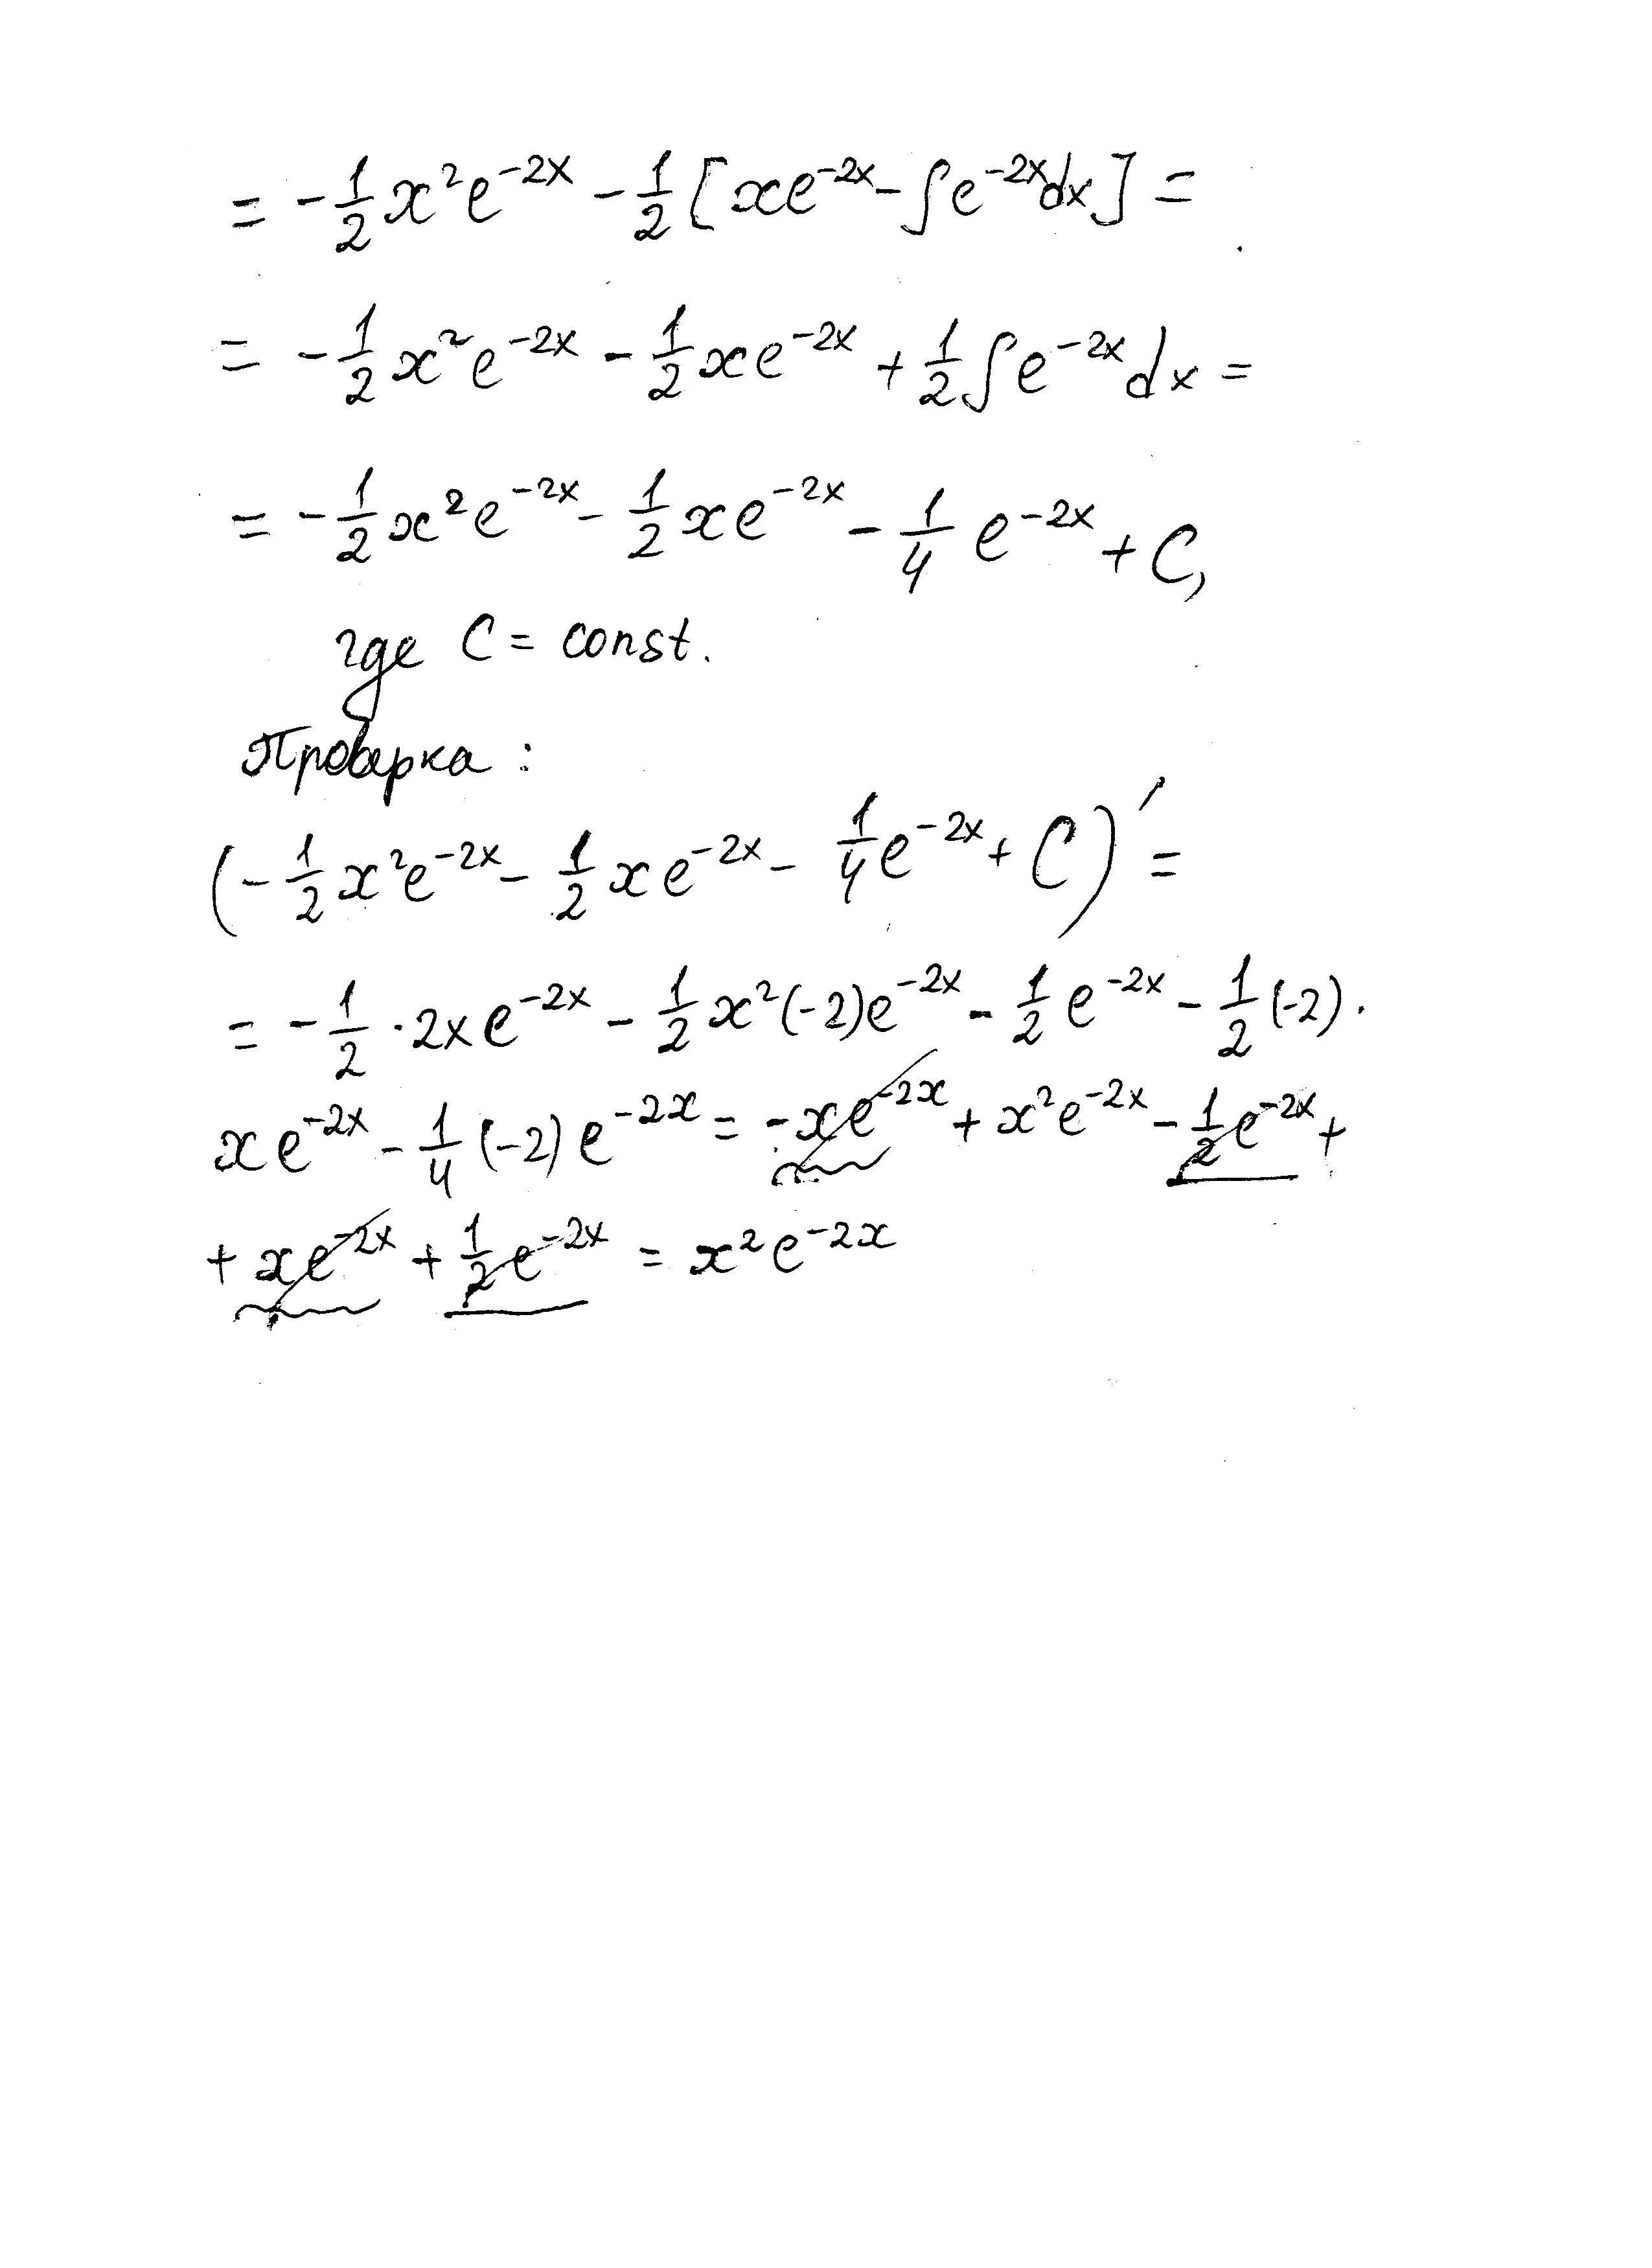 = -1/2 x²e^{-2x} - 1/2 [xe^{-2x} - ∫e^{-2x}dx] =
= -1/2 x²e^{-2x} - 1/2 xe^{-2x} + 1/2 ∫e^{-2x}dx =
= -1/2 x²e^{-2x} - 1/2 xe^{-2x} - 1/4 e^{-2x} + C,
где C = const.
Проверка:
(-1/2 x²e^{-2x} - 1/2 xe^{-2x} - 1/4 e^{-2x} + C)' =
= -1/2 · 2xe^{-2x} - 1/2 x²(-2)e^{-2x} - 1/2 e^{-2x} - 1/2 (-2) ·
xe^{-2x} - 1/4 (-2)e^{-2x} = -xe^{-2x} + x²e^{-2x} - 1/2 e^{-2x} +
+ xe^{-2x} + 1/2 e^{-2x} = x²e^{-2x}